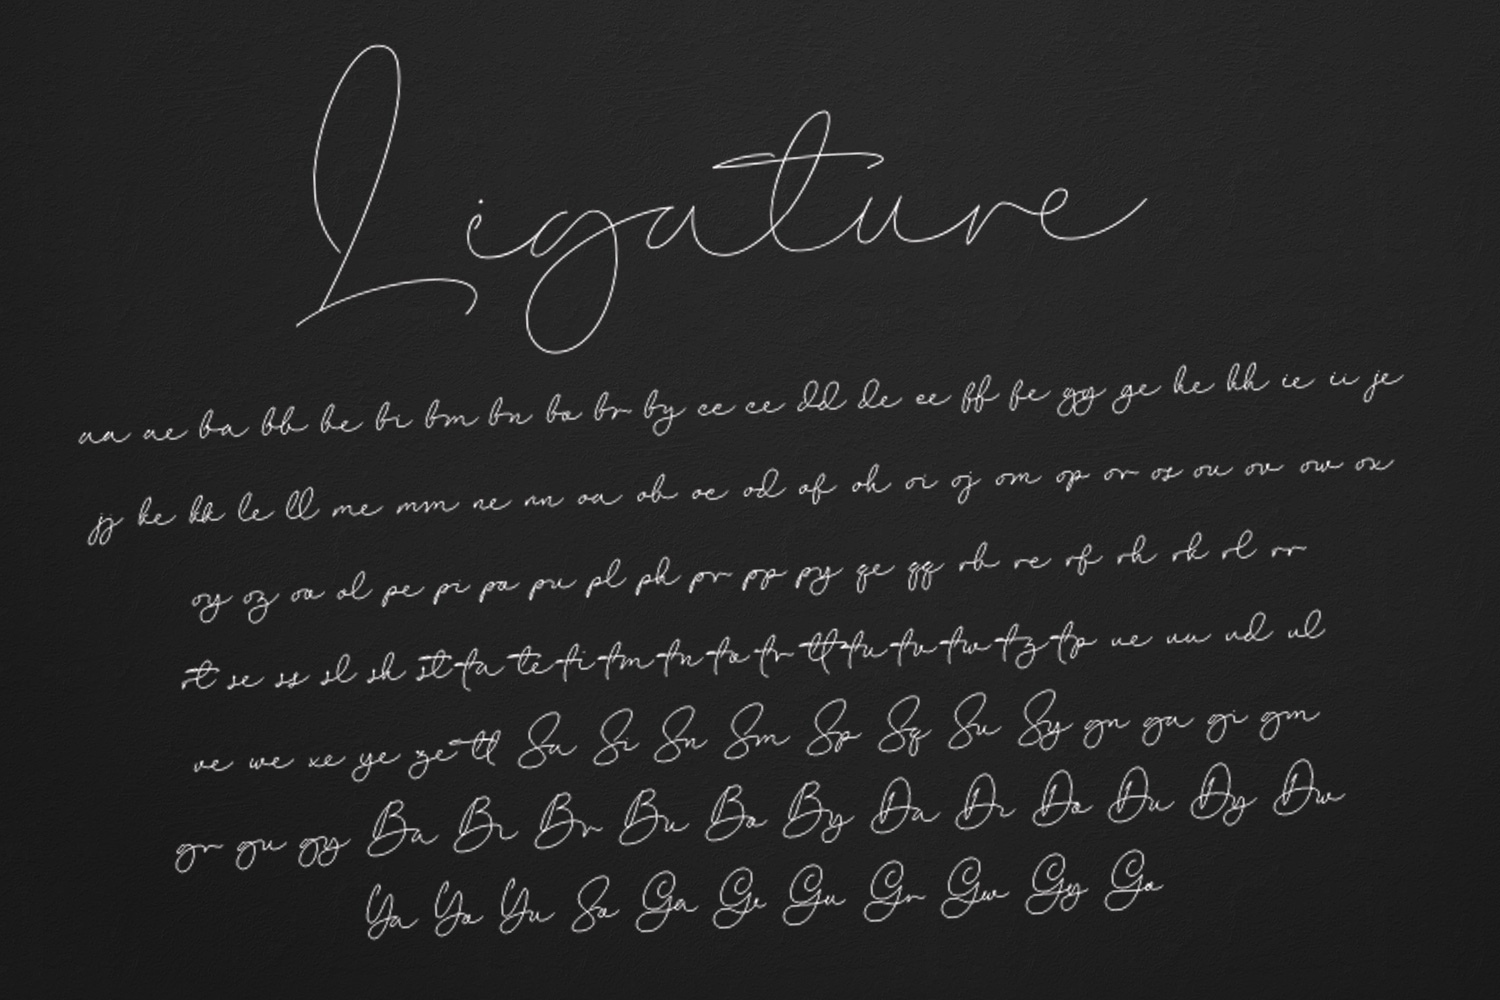 Ligature
aa ae ba bb be bi bm bn bo br by ce ce dd de ee ff fe gg ge he hh ie ii je
jj ke kk le ll me mm ne nn oa ob oc od of oh oi oj om op or os ou ov ow ox
oy oz oo ol pe pi po pu pl ph pr pp py qe qq rb re rf rh rk rl rr
rt se ss sl sh st ta te ti tm tn to tr tt tu tv tw tz tp ue uu ud ul
ve we xe ye ze tl Sa Si Sn Sm Sp Sq Su Sy gn ga gi gm
gr gu gy Ba Bi Br Bu Bo By Da Di Do Du Dy Dw
Ya Yo Yu So Ga Gu Gr Gw Gy Go